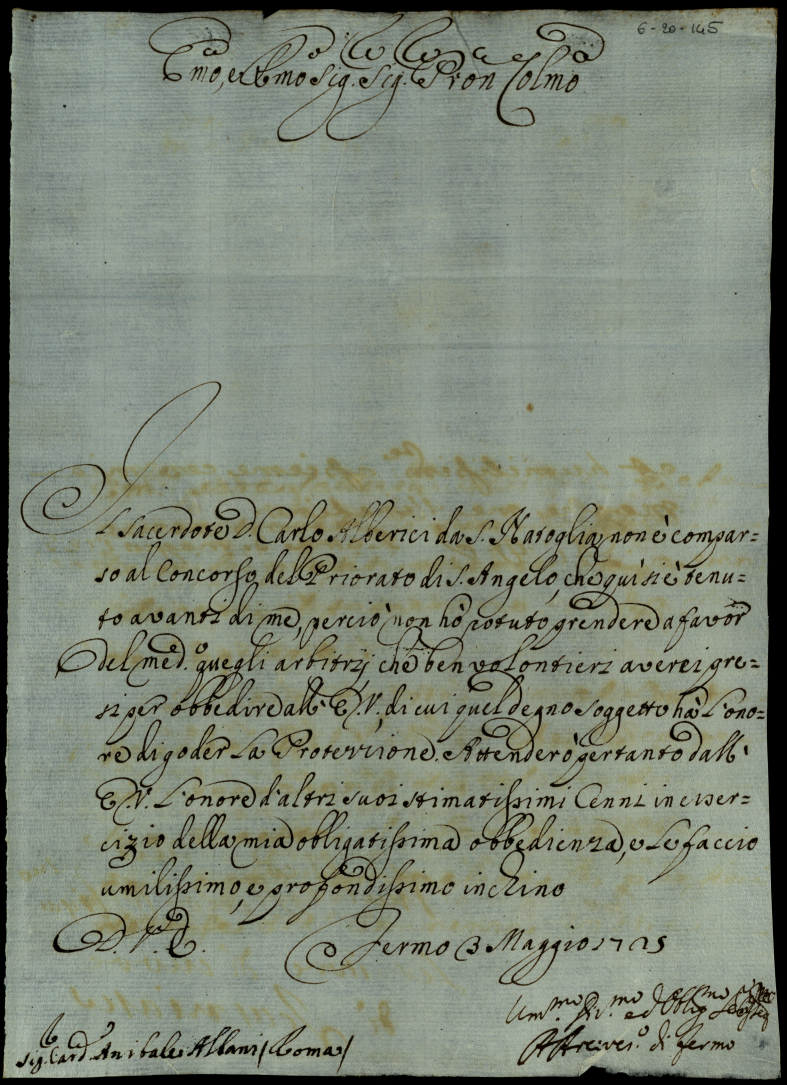 6-20-145
Emo, e Rmo Sig. Sig. Pron Colmo
Il Sacerdote D. Carlo Alberici da S. Natoglia, non è compar=
so al Concorso del Priorato di S. Angelo, che quì si è tenu=
to avanti di me, perciò non hò potuto prendere a favor
del med.o quegli arbitrij che ben volontieri averei pre=
si per obbedire all' E.V., di cui quel degno soggetto hà l'ono=
re di goder la Protezzione. Attenderò pertanto dall'
E.V. l'onore d'altri suoi stimatissimi Cenni in eser=
cizio della mia obligatissima obbedienza, e le faccio
umilissimo, e profondissimo inchino
D. V. E. Fermo 3 Maggio 1725
Um.mo Div.mo ed Oblig.mo
Sig. Card. Anibale Albani / Roma / A Arcives.o di Fermo